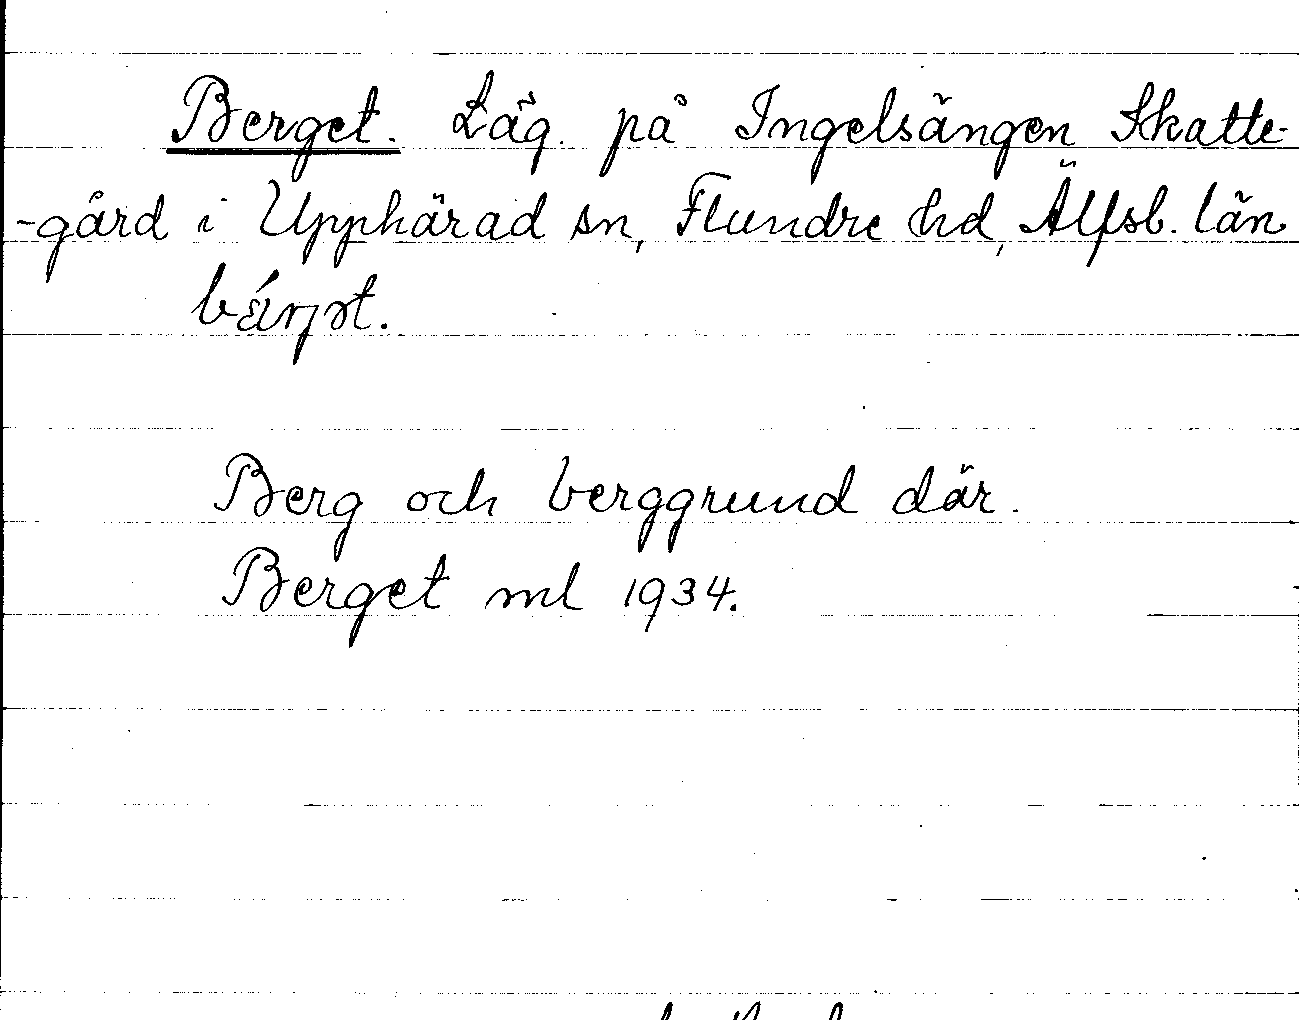 Berget. Läg. på Ingelsängen Skatte-
-gård i Upphärad sn, Flundre hd, Älfsb. län
Berg och berggrund där.
Berget ml 1934.